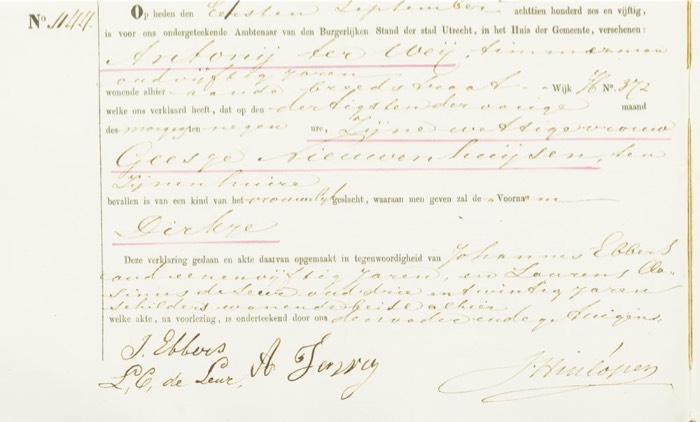 Nº 1144.
Op heden den Eersten September achttien honderd zes en vijftig,
is voor ons ondergeteekende Ambtenaar van den Burgerlijken Stand der stad Utrecht, in het Huis der Gemeente, verschenen:
Antonij ter Weij, timmerman
oud vijftig jaren
wonende alhier aande breedstraat Wijk H Nº. 372
welke ons verklaard heeft, dat op den dertigsten der vorige maand
des morgens ten negen ure, Zijne wettige vrouw
Geesge Nieuwenhuijsen, ten
Zijnen huize
bevallen is van een kind van het vrouwelijk geslacht, waaraan men geven zal de Voornam
Dirkje
Deze verklaring gedaan en akte daarvan opgemaakt in tegenwoordigheid van Johannes Ebbers
oud een en vijftig jaren, en Laurens Cla-
sinus de Leur oud drie en twintig jaren
schilders wonende beide alhier
welke akte, na voorlezing, is onderteekend door ons den vader en de getuigens.
J. Ebbers
L. C. de Leur, A Terweij
J Hinlopen